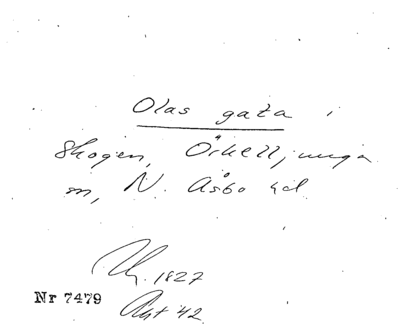 Olas gata i
Skogen, Örkelljunga
m, N. Åsbo hd.
1827
Nr 7479
42